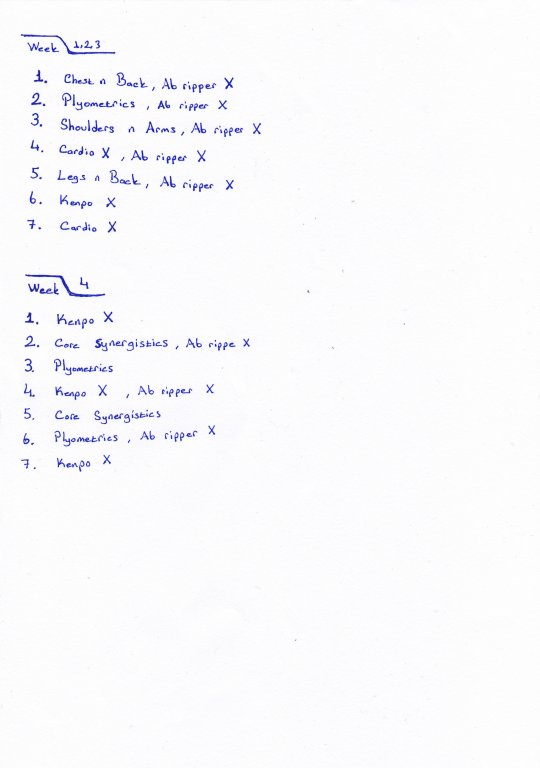 Week 1,2,3
1. Chest n Back, Ab ripper X
2. Plyometrics, Ab ripper X
3. Shoulders n Arms, Ab ripper X
4. Cardio X, Ab ripper X
5. Legs n Back, Ab ripper X
6. Kenpo X
7. Cardio X
Week 4
1. Kenpo X
2. Core Synergistics, Ab rippe X
3. Plyometrics
4. Kenpo X, Ab ripper X
5. Core Synergistics
6. Plyometrics, Ab ripper X
7. Kenpo X